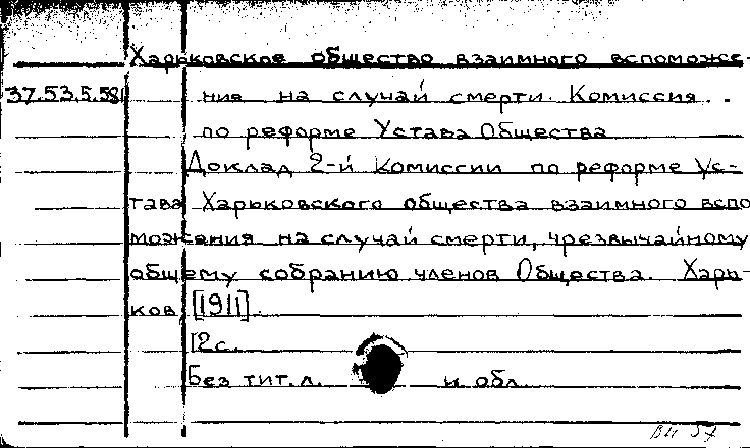 Харьковское общество взаимного вспоможе-
37.53.5.58 ния на случай смерти. Комиссия
по реформе Устава Общества
Доклад 2-й Комиссии по реформе Ус-
тава Харьковского общества взаимного вспо
можения на случай смерти, чрезвычайному
общему собранию членов Общества. Харь-
ков, [1911].
12с.
Без тит. л. и обл.